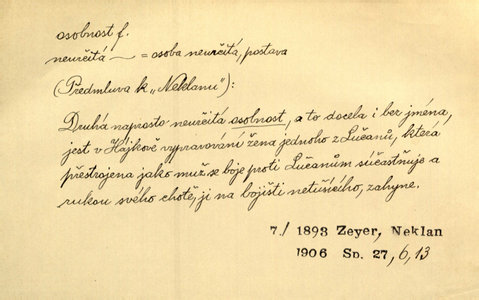 osobnost f.
neurčitá ~ = osoba neurčitá, postava
(Předmluva k „Neklanu"):
Druhá naprosto neurčitá osobnost, a to docela i bez jména,
jest v Hájkově vypravování žena jednoho z Lučanů, která
přestrojena jako muž se boje proti Lučanům súčastňuje a
rukou svého chotě, ji na bojišti netušícího, zahyne.
7./ 1893 Zeyer, Neklan
1906 Sp. 27, 6, 13